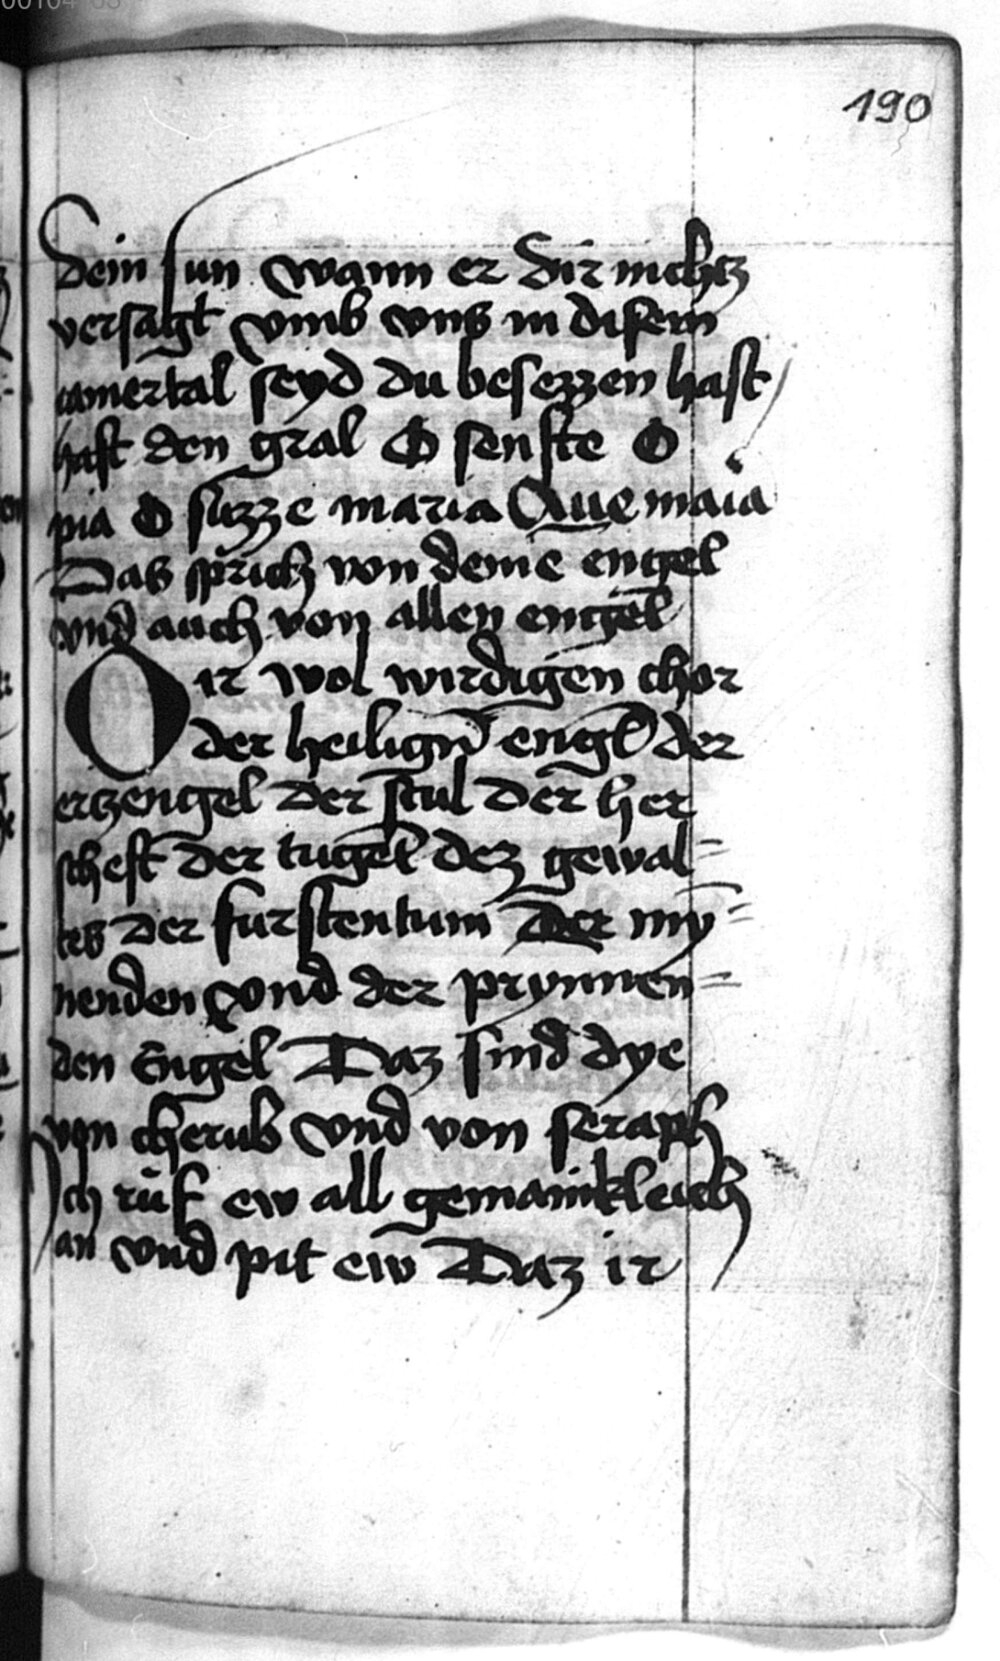 190
dein sun wann er dir nichtz
versagt vmb vns in disem
iamertal seyd du besezzen hast
hast den gral O senfte O
pia O suzze maria Aue maria
Das sprich von deine engel
vnd auch von allen engel
O ir wol wirdigen chor
der heilign engel der
ertzengel der stul der her
scheft der tugel dez gewal=
tes der furstentum der my=
nenden vnd der prynnen=
den Engel Daz sind dye
von cherub vnd von seraph
Ich ruf ew all gemainkleich
an vnd pit ew Daz ir